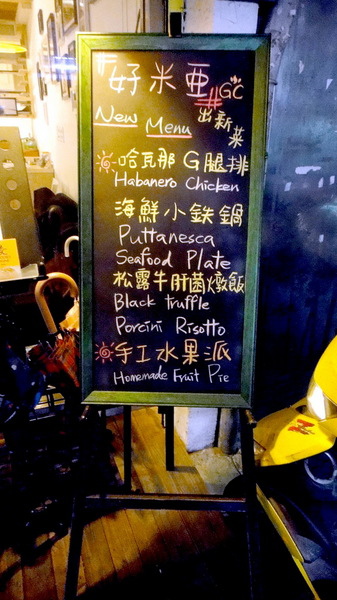 #好米亜#GC
New Menu 出新菜
哈瓦那G腿排
Habanero Chicken
海鮮小鉄鍋
Puttanesca
Seafood Plate
松露牛肝菌燉飯
Black truffle
Porcini Risotto
手工水果派
Homemade Fruit Pie